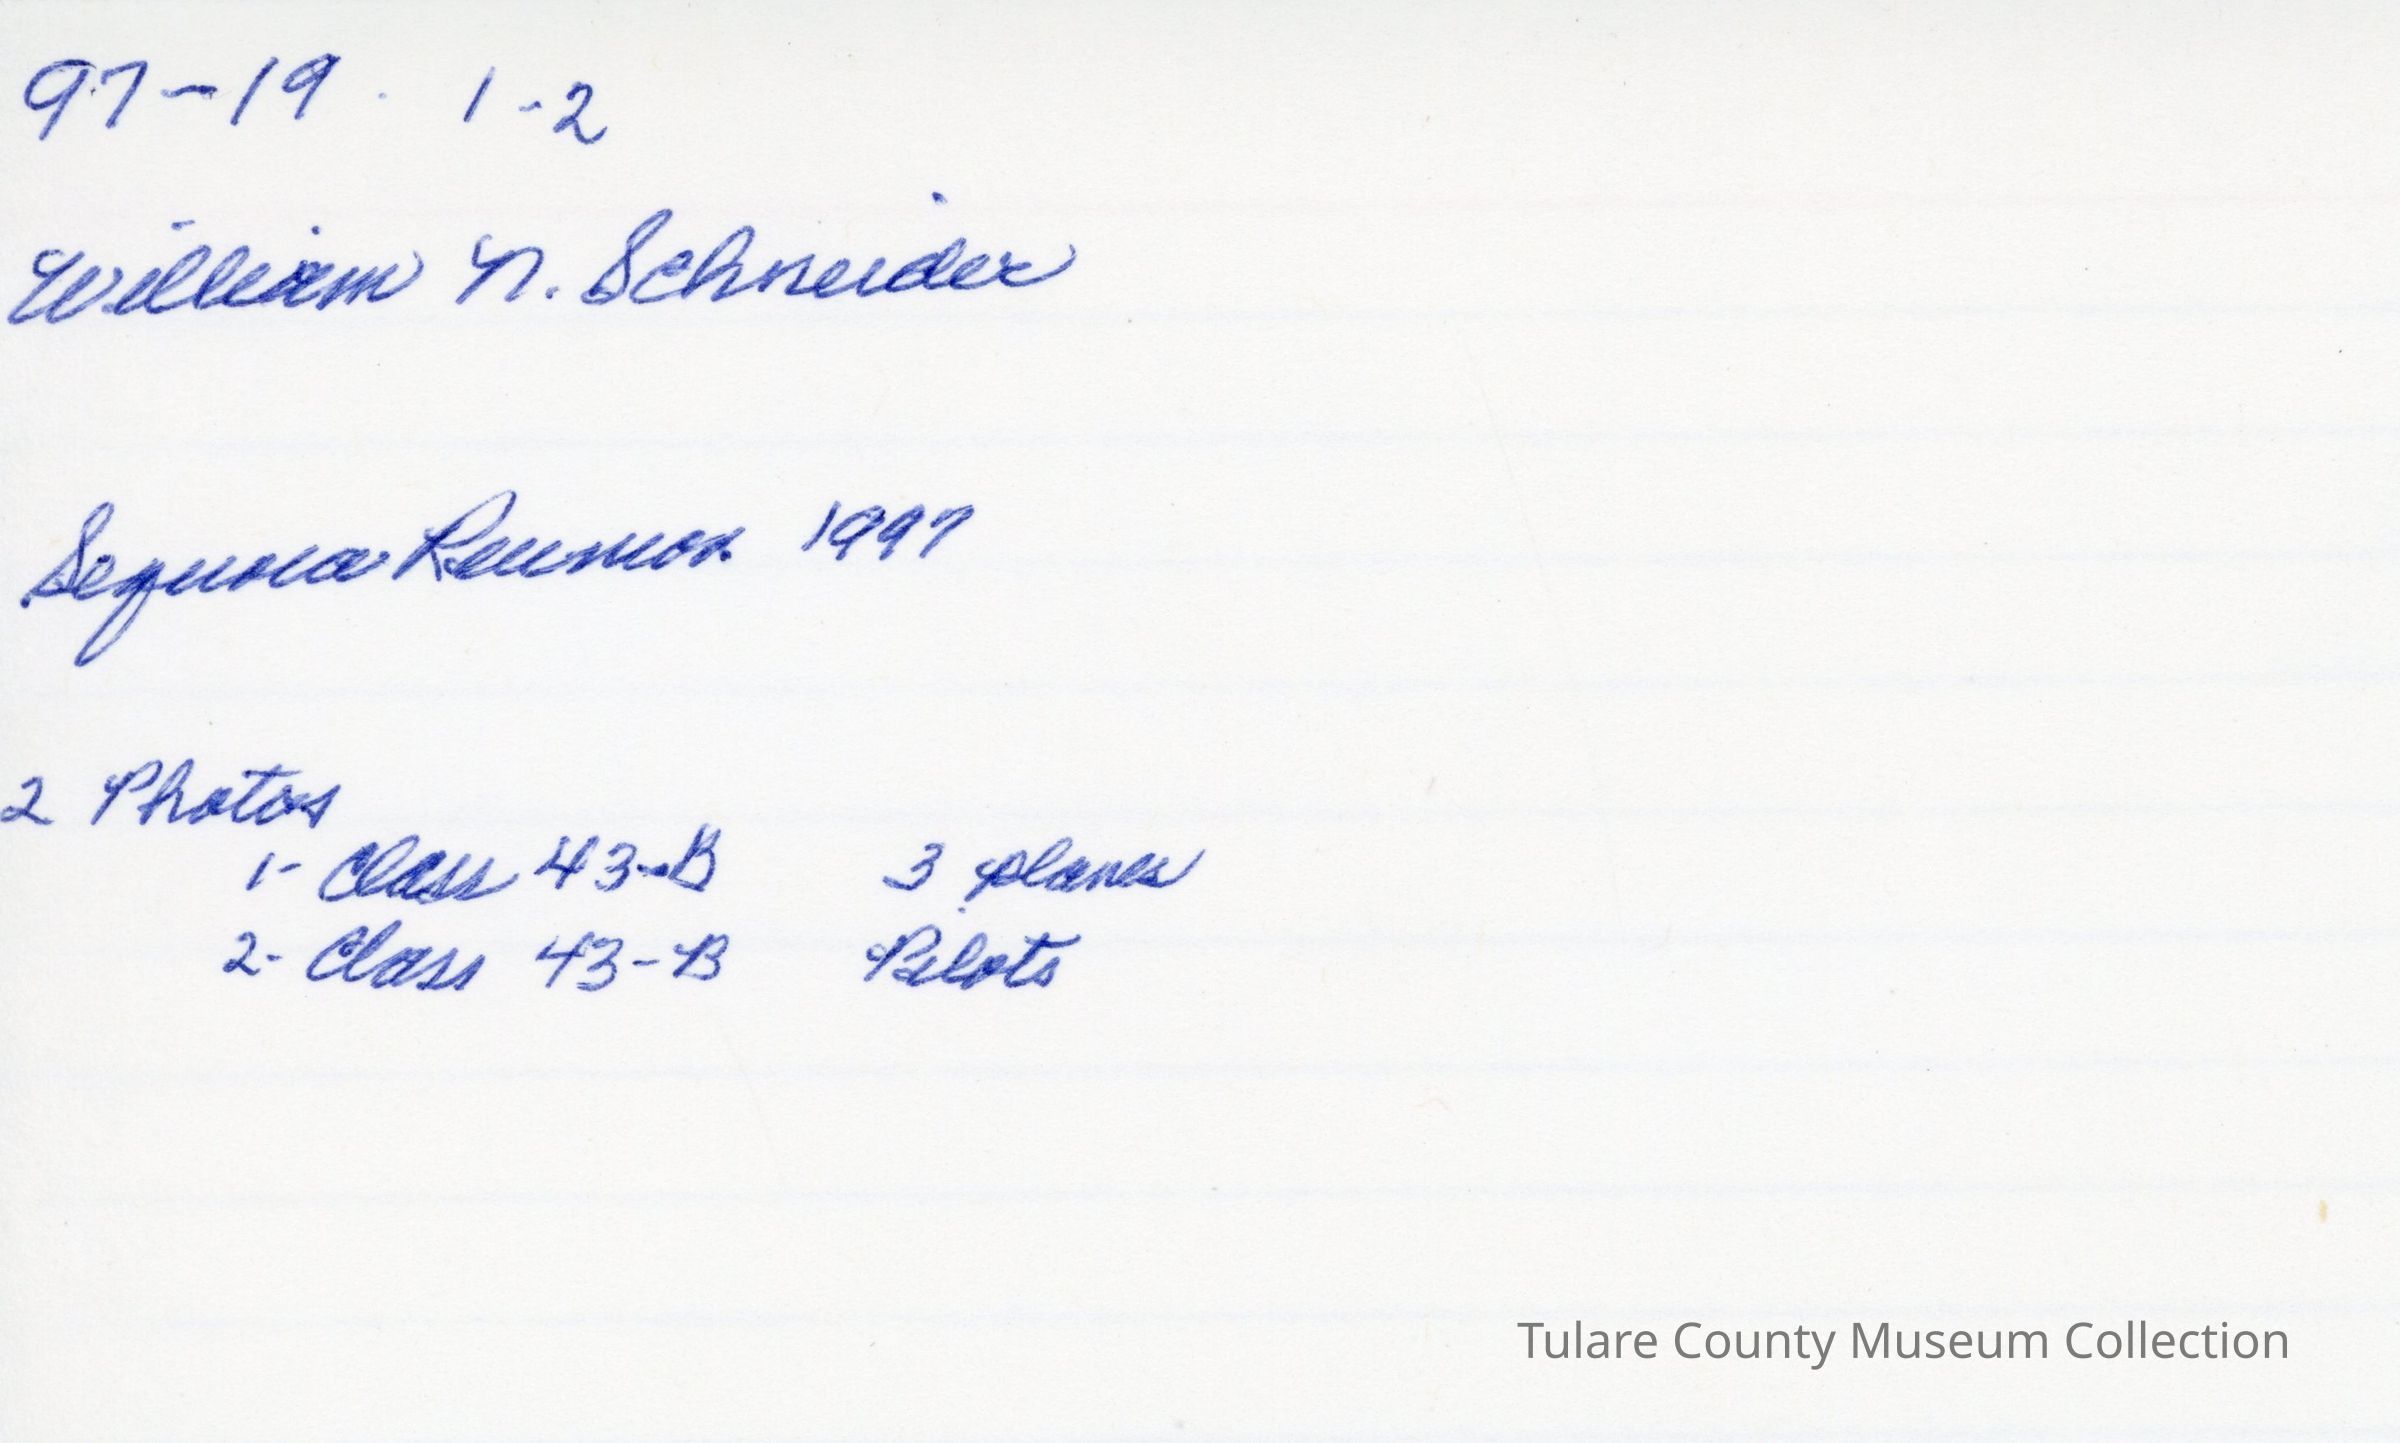 97-19 1-2
William N. Schneider
Sequoia Reunion 1997
2 Photos
1- Class 43-B 3 planes
2- Class 43-B Pilots
Tulare County Museum Collection